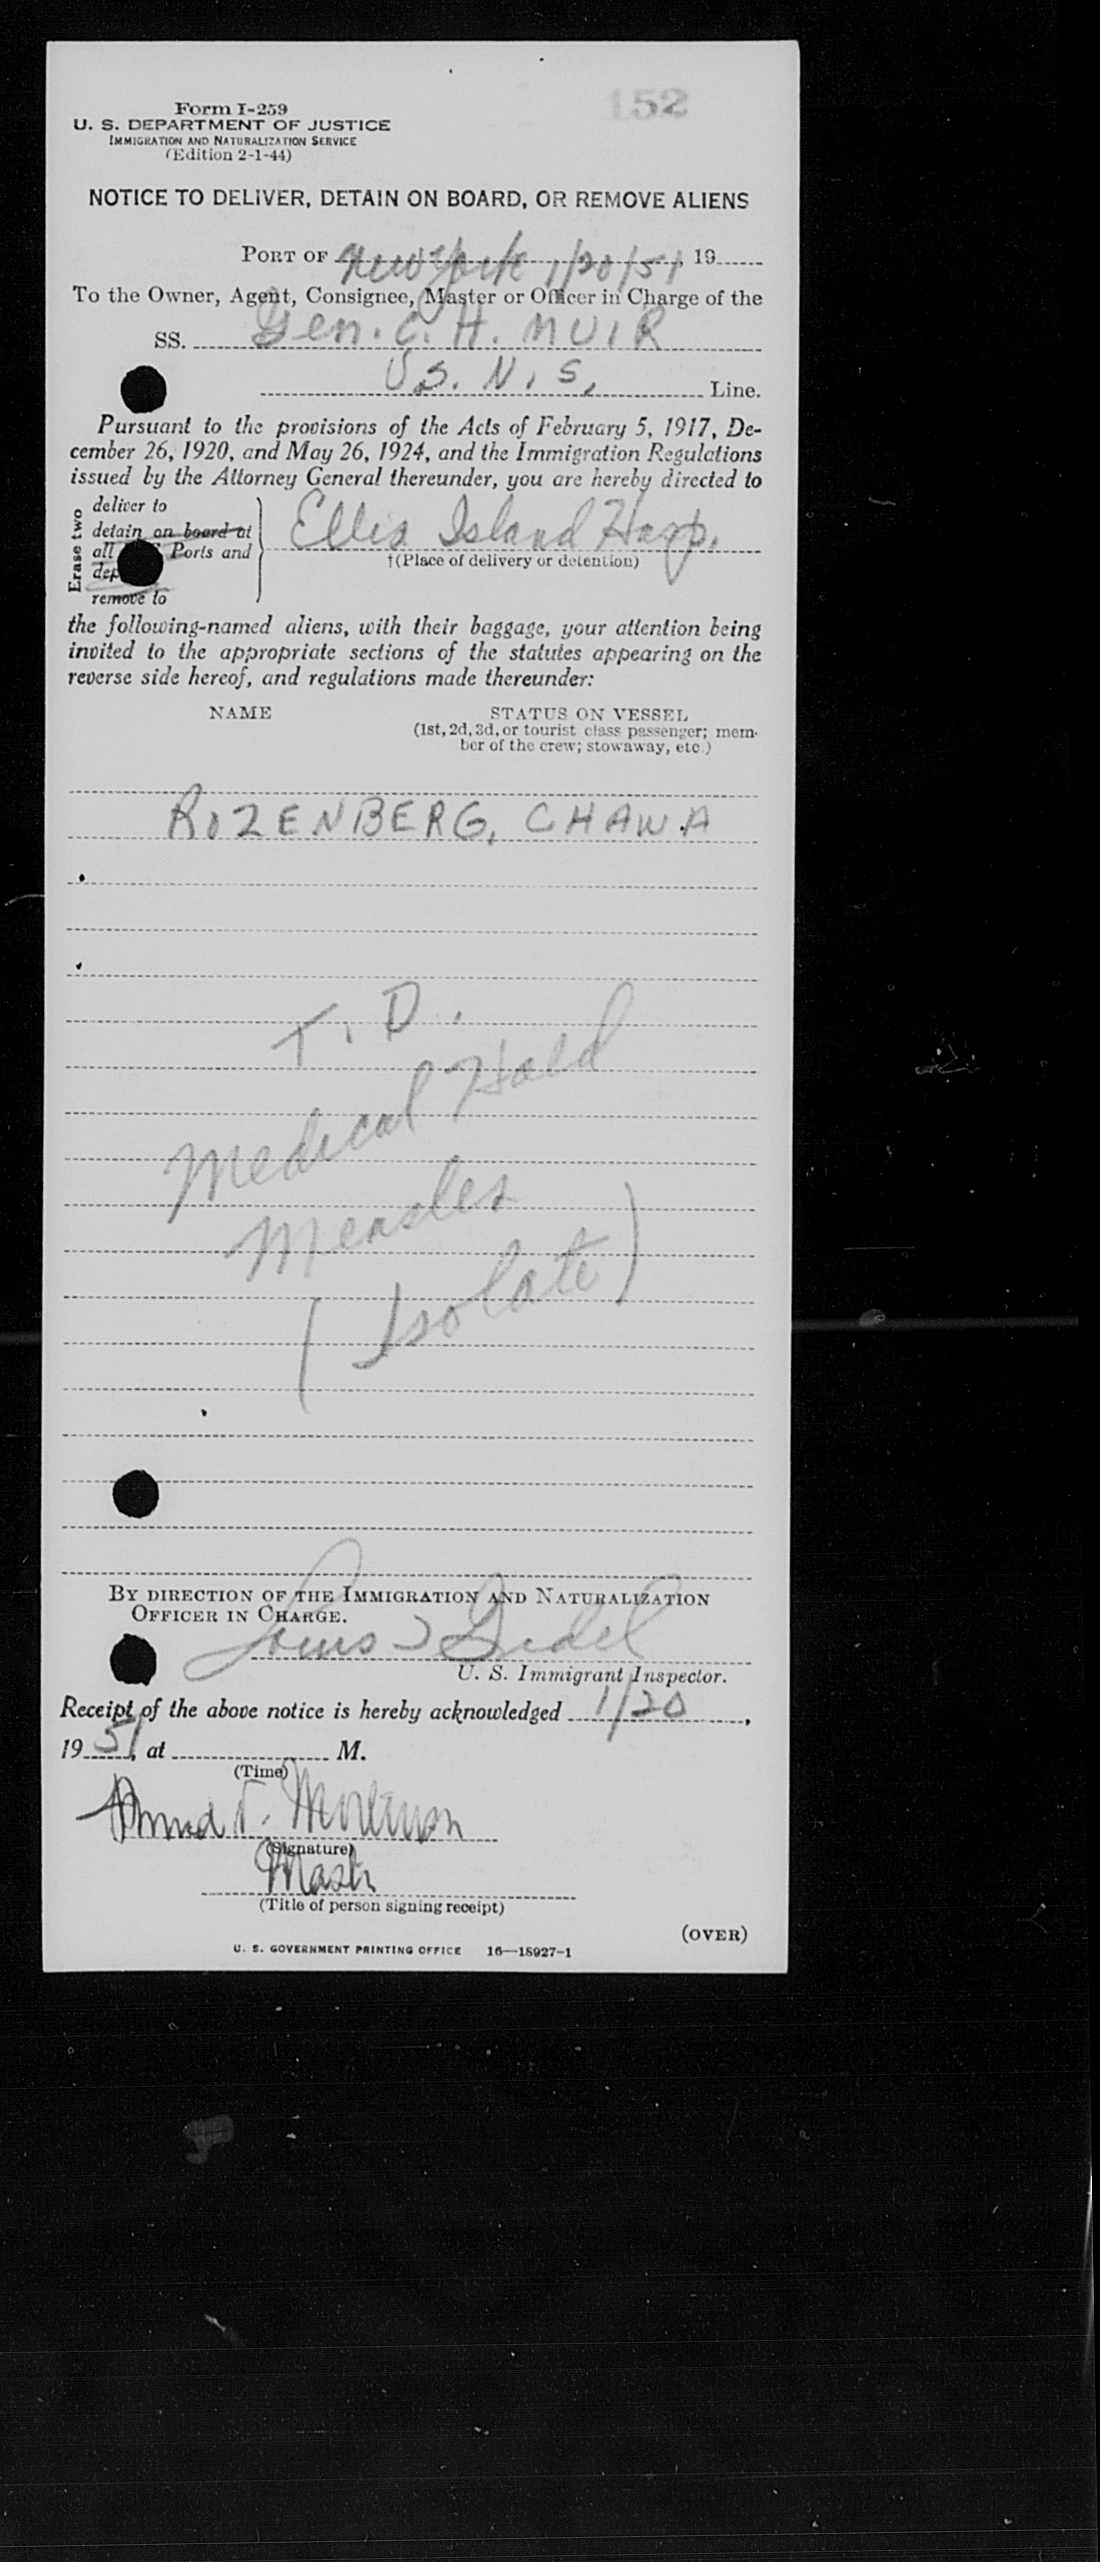 152
Form I-259
U. S. DEPARTMENT OF JUSTICE
IMMIGRATION AND NATURALIZATION SERVICE
(Edition 2-1-44)
NOTICE TO DELIVER, DETAIN ON BOARD, OR REMOVE ALIENS
PORT OF New York 1/20/51, 19
To the Owner, Agent, Consignee, Master or Officer in Charge of the
SS. Gen. C. H. MUIR
U.S. N. S. Line.
Pursuant to the provisions of the Acts of February 5, 1917, De-
cember 26, 1920, and May 26, 1924, and the Immigration Regulations
issued by the Attorney General thereunder, you are hereby directed to
Erase two
deliver to
detain on board at
all Ports and
remove to
Ellis Island Hosp.
†(Place of delivery or detention)
the following-named aliens, with their baggage, your attention being
invited to the appropriate sections of the statutes appearing on the
reverse side hereof, and regulations made thereunder:
NAME STATUS ON VESSEL
(1st, 2d, 3d, or tourist class passenger; mem-
ber of the crew; stowaway, etc.)
ROZENBERG, CHAWA
T. D.
Medical Hold
Measles
(Isolate)
BY DIRECTION OF THE IMMIGRATION AND NATURALIZATION
OFFICER IN CHARGE.
Louis
U. S. Immigrant Inspector.
Receipt of the above notice is hereby acknowledged 1/20,
19 51, at M.
(Time)
(Signature)
(Title of person signing receipt)
(OVER)
U. S. GOVERNMENT PRINTING OFFICE 16—18927-1